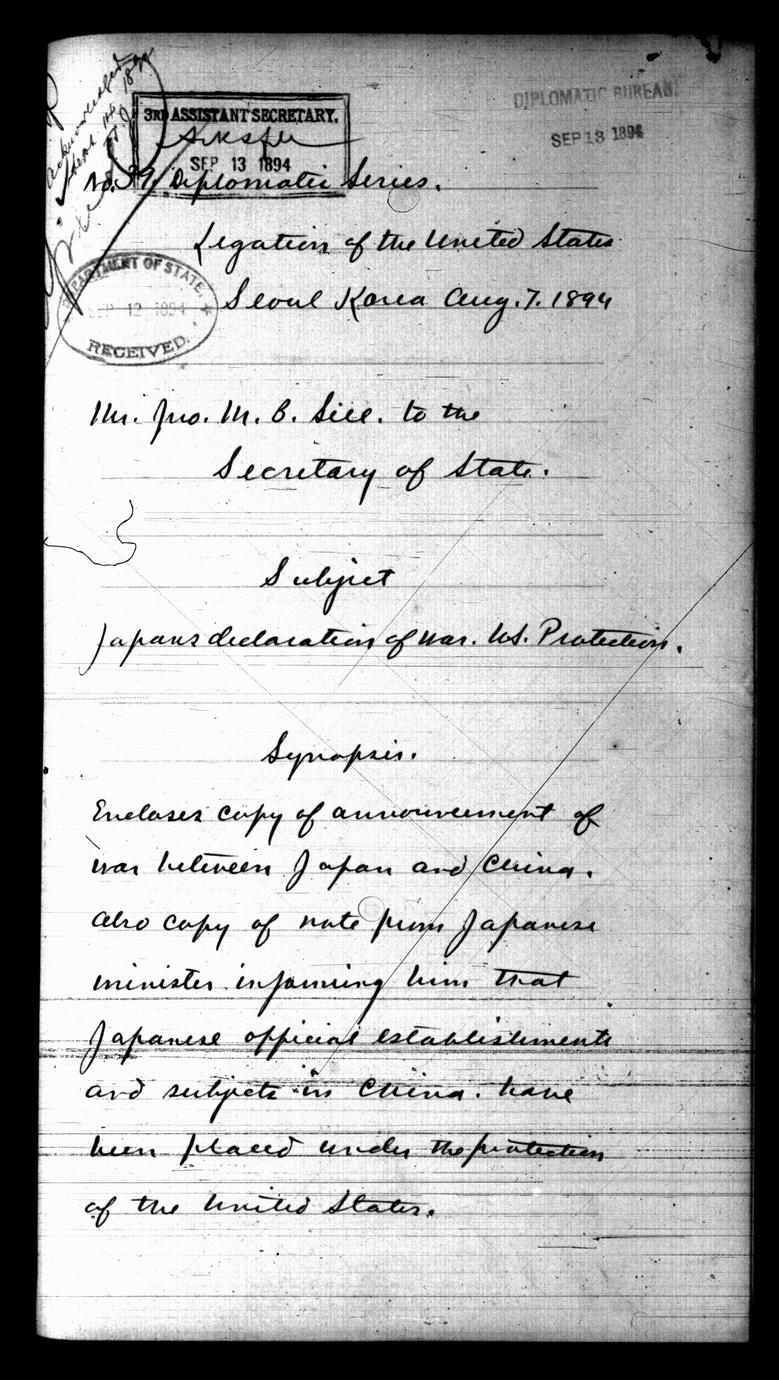 Acknowledged
3RD ASSISTANT SECRETARY.
SEP 13 1894
DIPLOMATIC BUREAU
SEP 18 1894
No. 39 Diplomatic Series.
Legation of the United States
DEPARTMENT OF STATE.
SEP 12 1894
RECEIVED.
Seoul Korea Aug. 7. 1894
Mr. Jno. M. B. Sill. to the
Secretary of State.
Subject
Japans declaration of war. U.S. Protection.
Synopsis.
Encloses copy of announcement of
war between Japan and China.
also copy of note from Japanese
minister informing him that
Japanese official establishments
and subjects in China. have
been placed under the protection
of the United States.